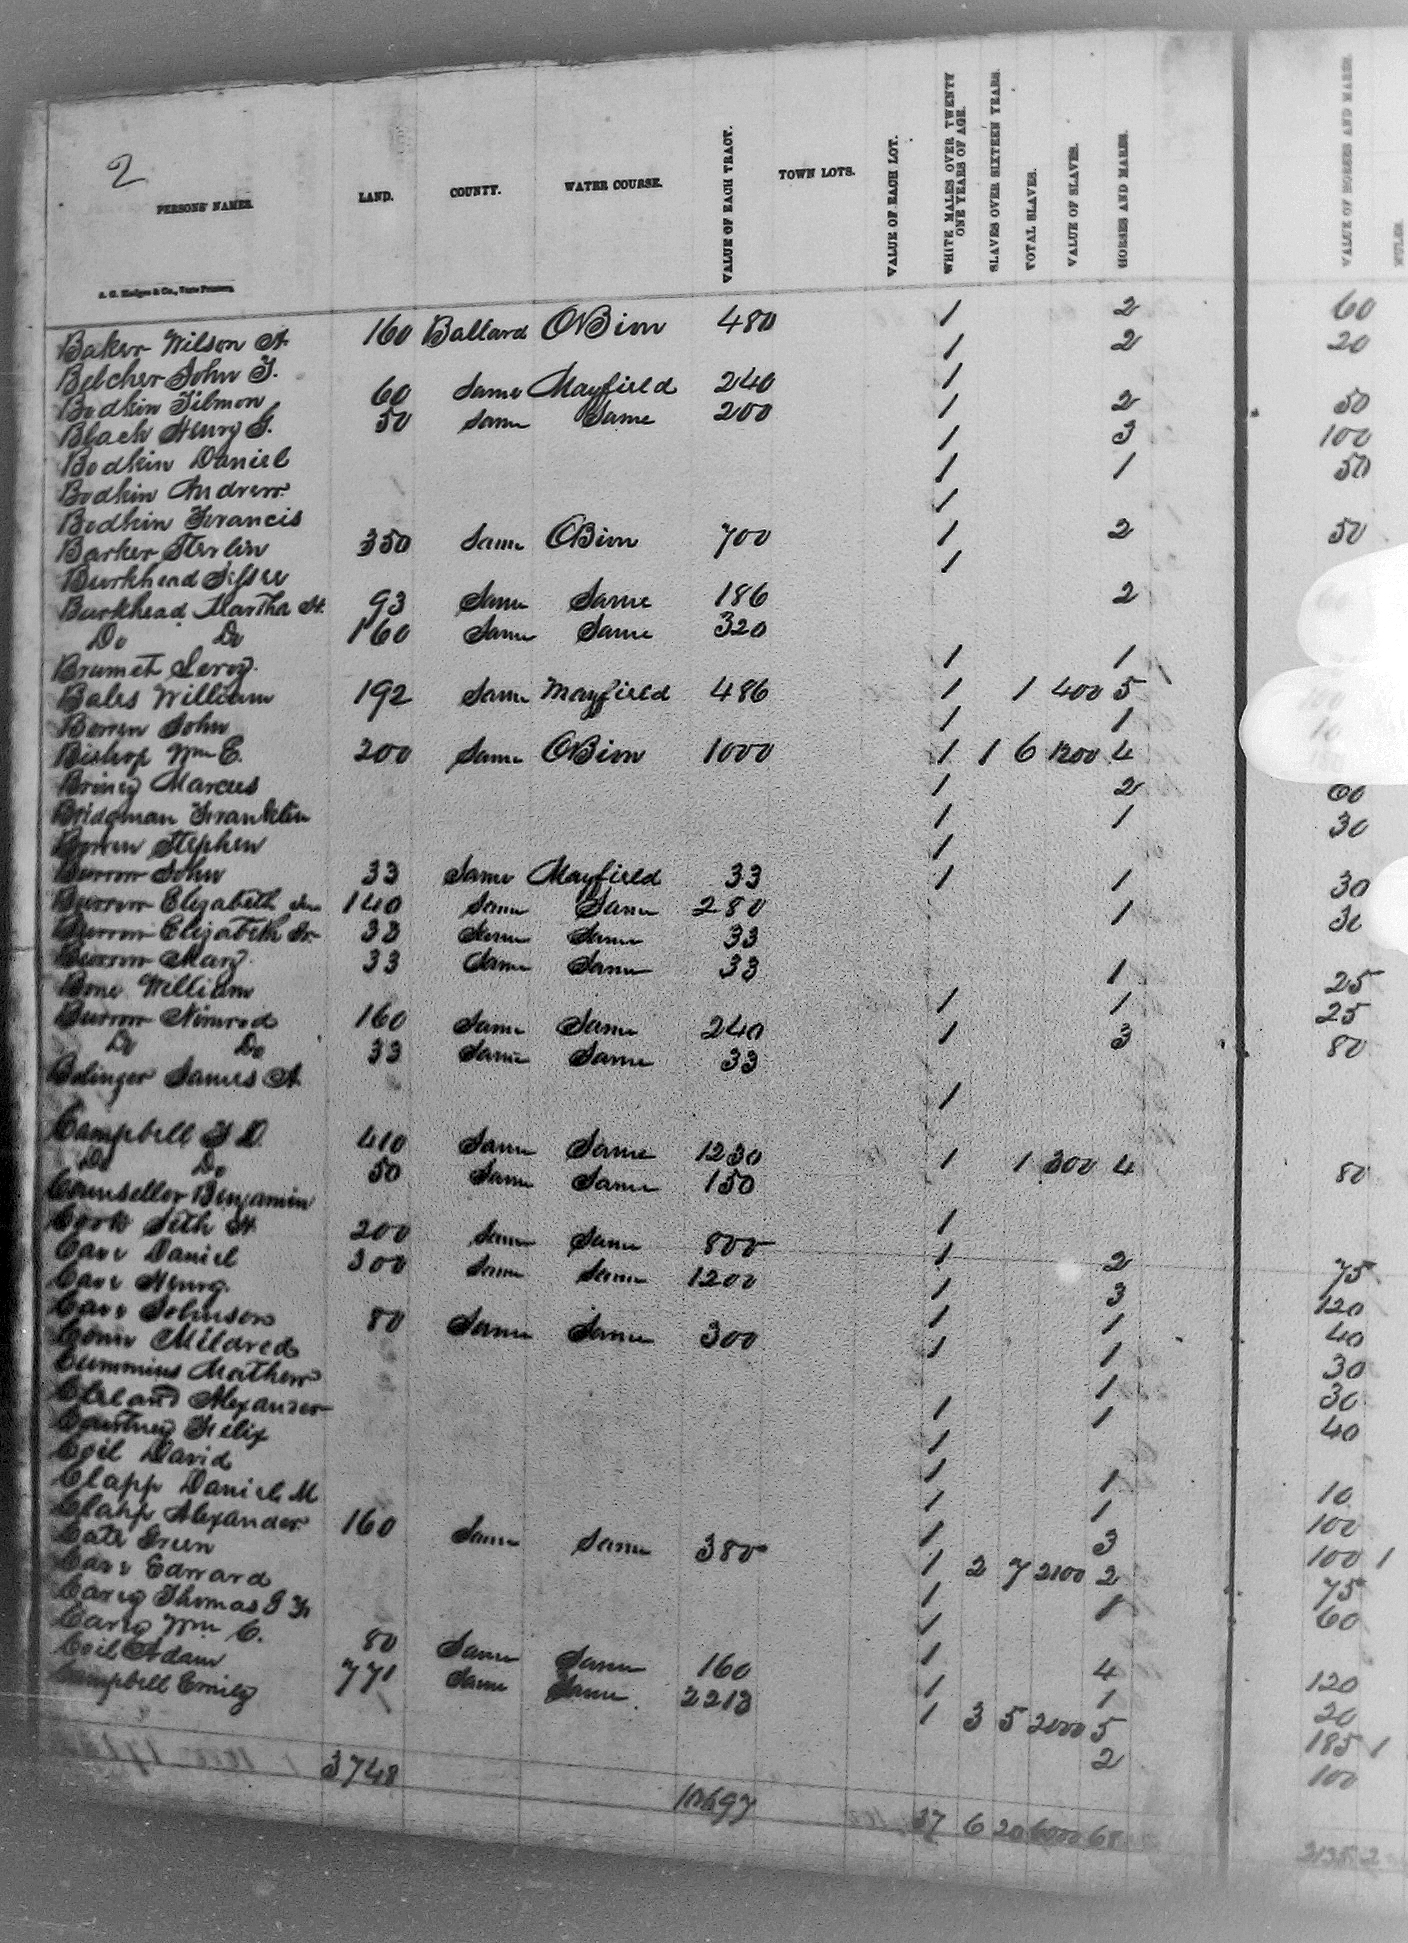 2
PERSONS' NAMES. LAND. COUNTY. WATER COURSE. VALUE OF EACH TRACT. TOWN LOTS. VALUE OF EACH LOT. WHITE MALES OVER TWENTY ONE YEARS OF AGE. SLAVES OVER SIXTEEN YEARS. TOTAL SLAVES. VALUE OF SLAVES. HORSES AND MARES. VALUE OF HORSES AND MARES. MULES.
A. G. Hodges & Co., State Printers.
Baker Wilson A. 160 Ballard OBion 480 1 2 60
Belcher John T. 1 2 20
Bodkin Tilmon 60 Same Mayfield 240 1
Black Henry G. 50 Same Same 200 1 2 50
Bodkin Daniel 1 3 100
Bodkin Andrew 1 1 50
Bodkin Francis 1
Barker Sterlin 350 Same OBion 700 1 2 50
Burkhead 1
Burkhead Martha H. 93 Same Same 186 2
Do Do 160 Same Same 320
Brumet Leroy 1 1
Bales William 192 Same Mayfield 486 1 1 400 5
Borren John 1 1
Bishop Wm E. 200 Same OBion 1000 1 1 6 1200 4
Briney Marcus 1 2 60
Bridgman Franklin 1 1 30
Borren Stephen 1
Burrow John 33 Same Mayfield 33 1 1 30
Burrow Elizabeth 140 Same Same 280 1 30
Burrow Elizabeth Jr. 33 Same Same 33
Burrow Mary 33 Same Same 33 1 25
Bone William 1 1 25
Burrow Nimrod 160 Same Same 240 1 3 80
Do Do 33 Same Same 33
Bolinger James A. 1
Campbell T D. 410 Same Same 1230 1 1 300 4 80
Do Do 50 Same Same 150
Counseller Benjamin 1
Cook Seth H. 200 Same Same 800 1 2 75
Cave Daniel 300 Same Same 1200 1 3 120
Cave Henry 1 1 40
Cave Johnson 80 Same Same 300 1 1 30
Conn Mildred 1 30
Cummins Mathew 1 1 40
Cleland Alexander 1
Courtney Felix 1 1 10
Coil David 1 1 100
Clapp Daniel M 1 3 100 1
Clapp Alexander 160 Same Same 380 1 2 7 2100 2 75
Cate Green 1 1 60
Cave Edward 1
Carey Thomas J 1 4 120
Carey Wm C. 1 1 20
Coil Adam 80 Same Same 160 1 3 5 2000 5 185 1
Campbell Emily 771 Same Same 2213 2 100
3748 37 6 20 6000 68 2135 2